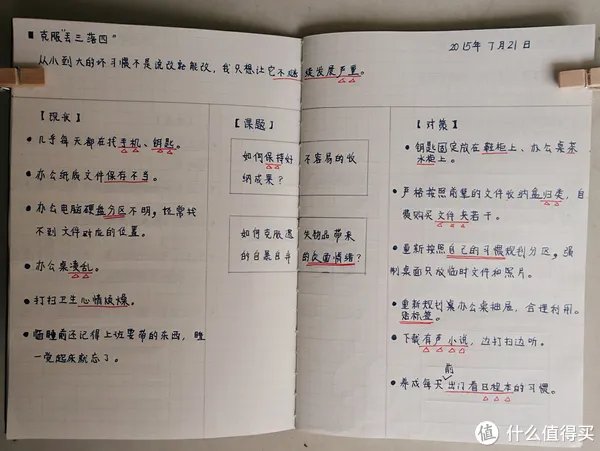 ■ 克服"丢三落四"
2015年7月21日
从小到大的坏习惯不是说改就能改，我只想让它不继续发展严重。
【现状】
• 几乎每天都在找手机、钥匙。
• 办公纸质文件保存不当。
• 办公电脑硬盘分区不明，经常找
不到文件对应的位置。
• 办公桌凌乱。
• 打扫卫生心情烦燥。
• 临睡前还记得上班要带的东西，睡
一觉起床就忘了。
【课题】
如何保持好不容易的收
纳成果？
如何克服遗失物品带来
的自暴自弃的反面情绪？
【对策】
• 钥匙固定放在鞋柜上、办公桌茶
水柜上。
• 严格按照角里的文件收纳盒归类，自
费购买文件夹若干。
• 重新按照自己的习惯规划分区，强
制桌面只放临时文件和照片。
• 重新规划桌办公桌抽屉，合理利用。
贴标签。
• 下载有声小说，边打扫边听。
前
• 养成每天出门看日程本的习惯。
值 什么值得买